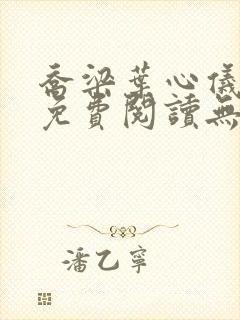 喬梁葉心儀
免費閱讀無
潘乙寧